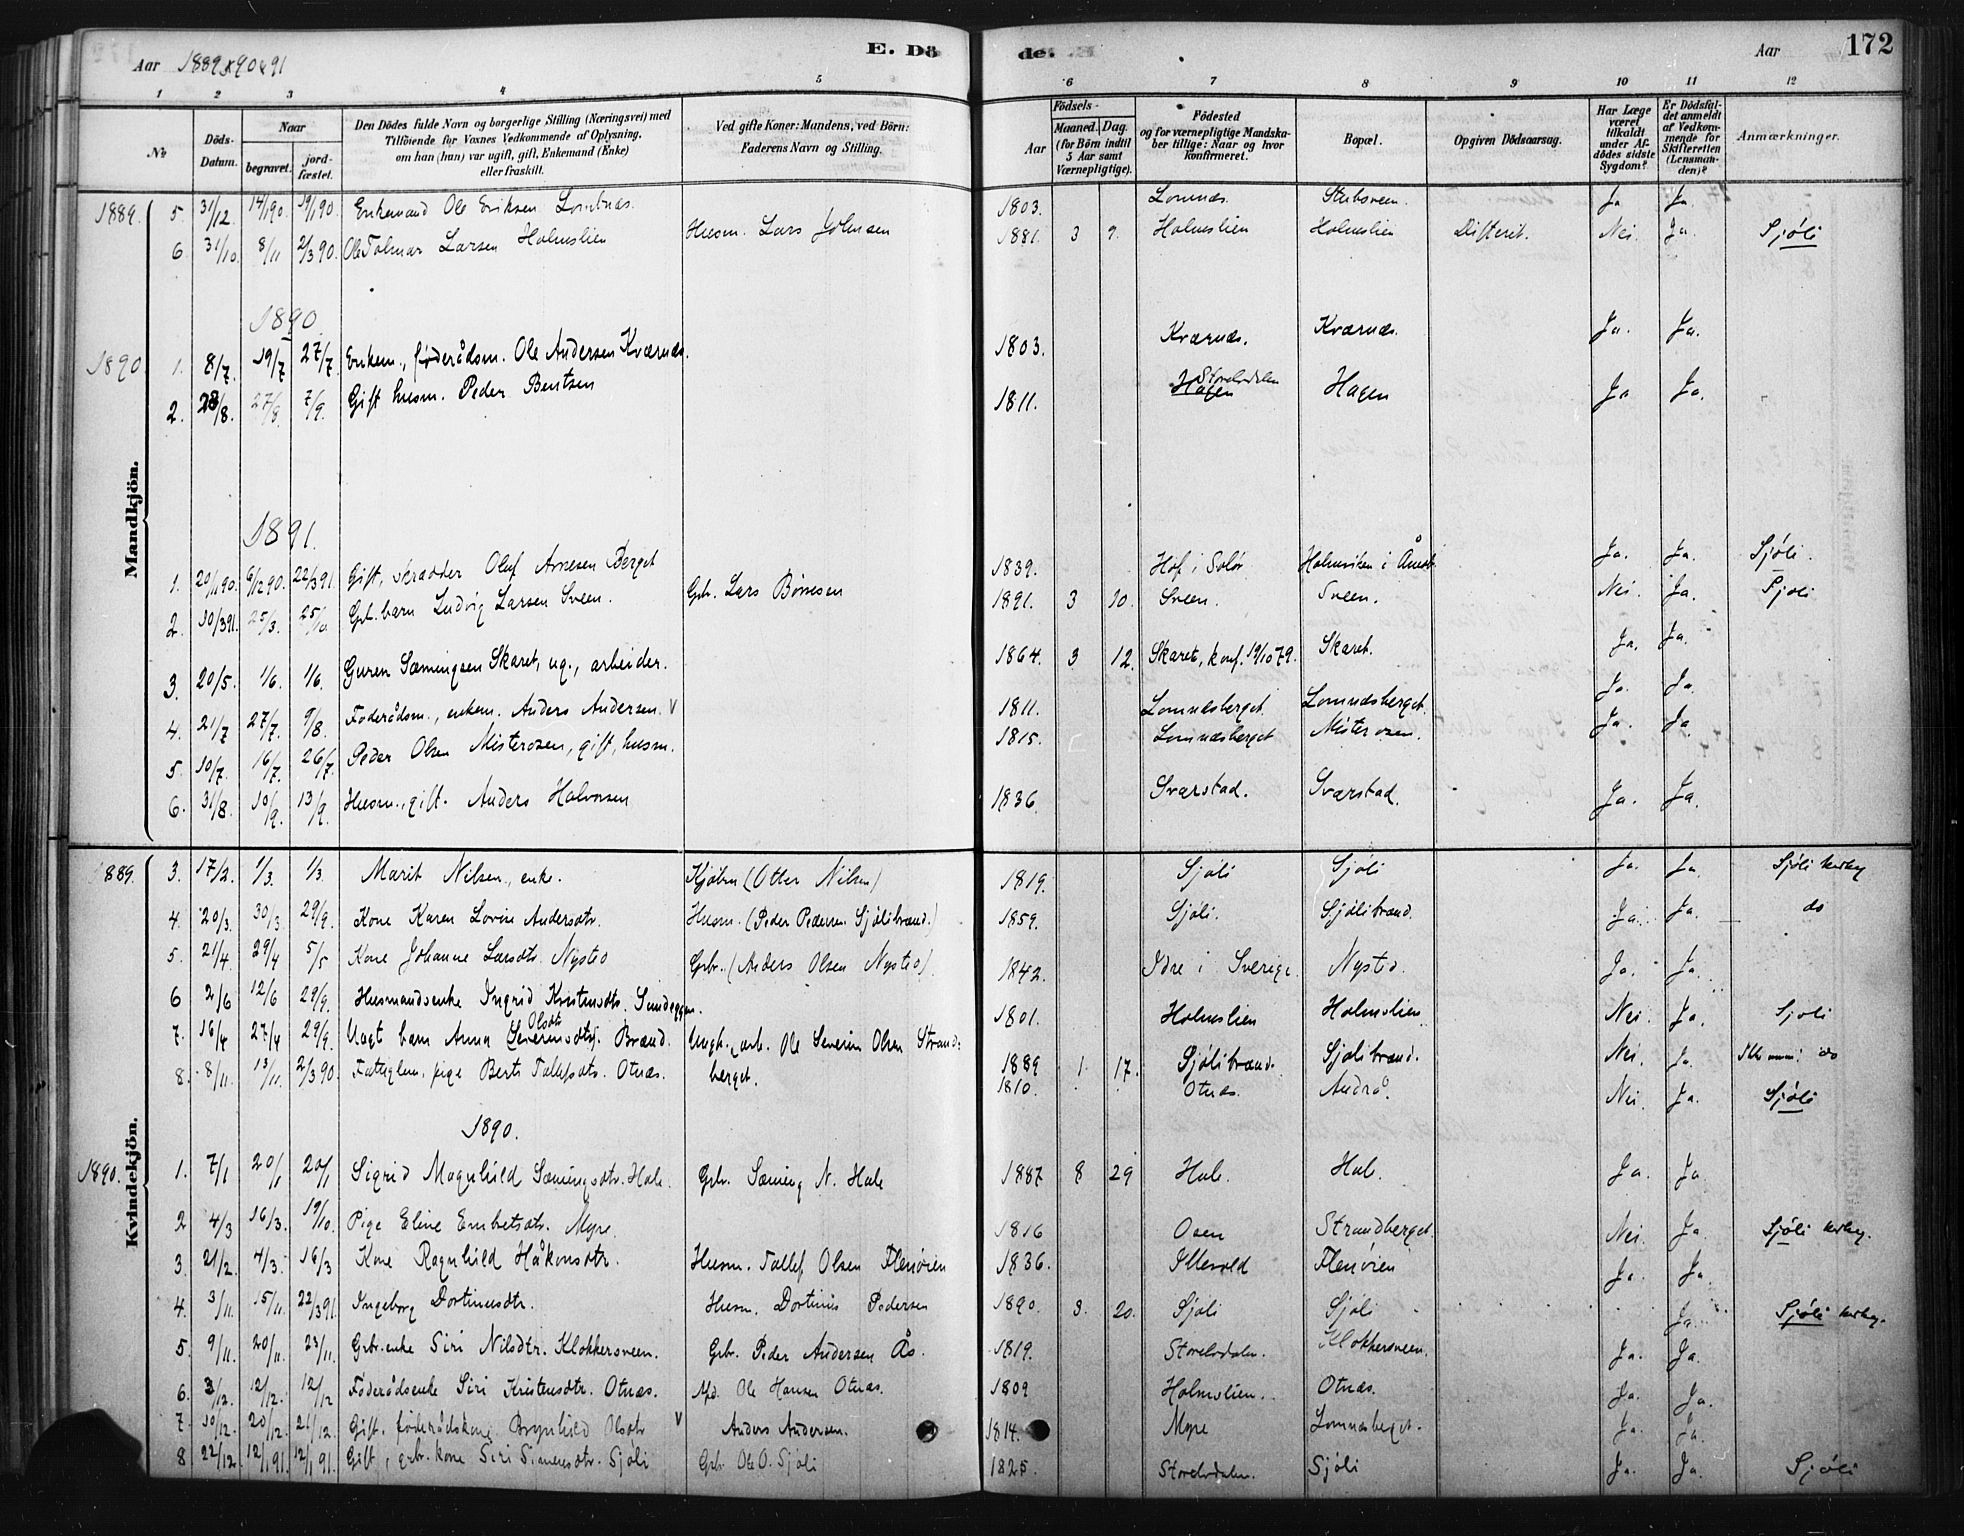 E. Döde.
172
Aar 1889, 90 & 91
Aar
1 2 3 4 5 6 7 8 9 10 11 12
No
Döds-Datum.
Naar
begravet.
jordfæstet.
Den Dödes fulde Navn og borgerlige Stilling (Næringsvei) med
Tilföiende for Voxnes Vedkommende af Oplysning,
om han (hun) var ugift, gift, Enkemand (Enke)
eller fraskilt.
Ved gifte Koner: Mandens, ved Börn:
Faderens Navn og Stilling.
Födsels-
Aar
Maaned. Dag.
(for Börn indtil 5 Aar samt Værnepligtige).
Födested
og for værnepligtige Mandskaber tillige: Naar og hvor konfirmeret.
Bopæl.
Opgiven Dödsaarsag.
Har Læge været tilkaldt under Afdödes sidste Sygdom?
Er Dödsfaldet anmeldt af Vedkommende for Skifteretten (Lensmanden)?
Anmærkninger.
Mandkjön.
1889. 5. 31/12 14/1 90. 19/1 90. Enkemand Ole Eriksen Lomnæs. 1803. Lomnæs. Stubsveen. Ja Ja.
6. 31/10. 8/11 2/3 90. Ole Tolmar Larsen Holmslien Husm. Lars Johnsen 1881. 3 9. Holmslien Holmslien Difterit. Nei. Ja. Sjöli
1890
1890. 1. 8/7. 19/7 27/7 Enkem., föderådsm. Ole Andersen Kværnæs. 1803. Kværnæs. Kværnæs. Ja. Ja.
2. 23/8. 27/8 7/9. Gift husm. Peder Bentsen 1811. Hagen Storelvdalen Hagen Ja Ja.
1891.
1. 20/11 90. 6/12 90. 22/3 91. Gift, skrædder Oluf Arnesen Berget 1839. Hof i Solör Holmviken i Åmot Ja. Ja. Sjöli.
2. 10/3 91. 25/3. 25/10 Grb. barn Ludvig Larsen Sveen. Grb. Lars Börresen 1891. 3 10. Sveen. Sveen. Nei. Ja. Sjöli
3. 20/5. 1/6. 1/6. Guren Sæmingsen Skaret, ug., arbeider. 1864. 3 12. Skaret, konf. 19/10 79. Skaret. Ja. Ja.
4. 21/7 27/7. 9/8. Föderådsm., enkem. Anders Andersen. V 1811. Lomnæsberget. Lomnæsberget. Ja. Ja.
5. 10/7. 16/7. 26/7. Peder Olsen Misterosen, gift, husm. 1815. Lomnæsberget Misterosen. Ja. Ja
6. 31/8. 10/9. 13/9. Husm., gift. Anders Halvorsen 1836 Sværstad. Sværstad. Ja. Ja.
Kvindekjön.
1889. 3. 17/2. 1/3. 1/3. Marit Nilsen, enke. Kjöbm (Otter Nilsen) 1819. Sjöli Sjöli Ja. Ja Sjöli kirkeg
4. 20/3. 30/3. 29/9. Kone Karen Lovise Andersdtr. Husm. (Peder Pedersen Sjölibrænd.) 1859. Sjöli. Sjölibrænd. Ja. Ja. do
5. 21/4. 29/4 5/5 Kone Johanne Larsdtr. Nysted Grbr. (Anders Olsen Nysted). 1842. Idre i Sverige. Nysted. Ja. Ja.
6 2/6 12/6 29/9. Husmandsenke Ingrid Kristensdtr. Sundeggen. 1801. Holmslien Holmslien Nei. Ja. Sjöli
7. 16/4 27/4 29/9. Uægt barn Anna Severinsdtr. Olsdtr Brænd. Ungk., arb. Ole Severin Olsen Strandberget. 1889 1. 17. Sjölibrænd. Sjölibrænd. Nei. Ja. do
8. 8/11. 13/11. 2/3 90. Fattiglem, pige Berte Tollefsdtr. Otnæs. 1810. Otnæs. Andrå. Nei. Ja. Sjöli
1890.
1890. 1. 7/1 20/1 20/1 Sigrid Magnhild Sæmingsdtr. Hole. Grbr. Sæming N. Hole 1887 8 29 Hole. Hole. Ja. Ja.
2 4/3 16/3. 19/10. Pige Eline Embretsdtr. Myre. 1816 Osen Strandberget Nei. Ja Sjöli kirkeg.
3. 21/2. 4/3. 16/3 Kone Ragnhild Håkonsdtr. Husm. Tollef Olsen Flenöien 1836. Illevold Flenöien Ja. Ja.
4. 3/11. 15/11. 22/3 91. Ingeborg Dortinusdtr. Husm. Dortinus Pedersen 1890. 3. 20. Sjöli Sjöli Ja. Sjöli kirkeg.
5. 9/11. 20/11. 23/11. Grb. enke Siri Nilsdtr. Klokkersveen. Grb. Peder Andersen Ås. 1819. Storelvdalen. Klokkersveen. Ja. Ja.
6. 3/12. 12/12. 12/12 Föderådsenke Siri Kristensdtr. Otnæs. Ole Hansen Otnæs. 1809 Holmslien. Otnæs. Ja. Ja.
7. 10/12. 20/12. 21/12. Gift. föderådskone Brynhild Olsdtr V Anders Andersen. 1814. Myre Lomnæsberget. Ja. Ja.
8 22/12. 12/1 91. 12/1 91. Gift, grbr. kone Siri Simensdtr. Sjöli Grb. Ole O. Sjöli 1825. Storelvdalen. Sjöli Ja. Ja. Sjöli